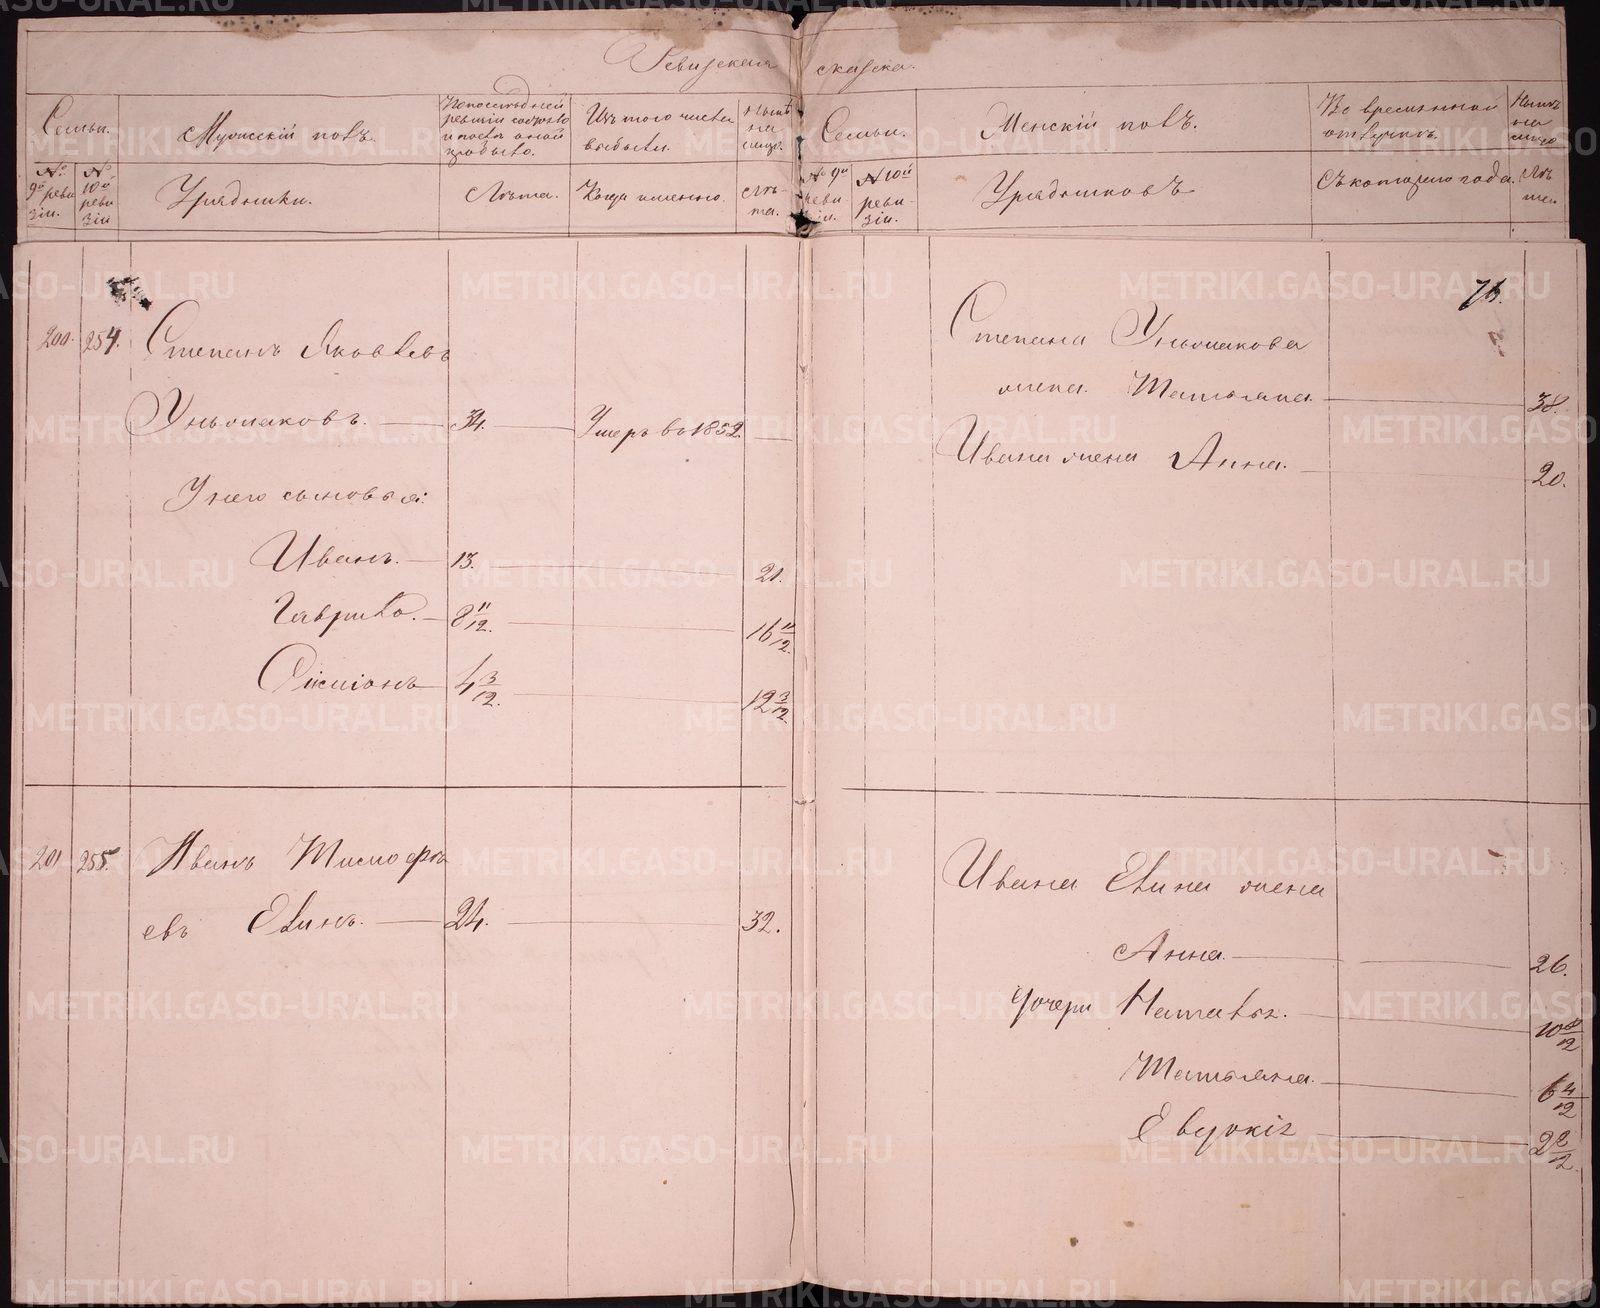 Ревизская сказка.
Семьи.
Мужескій полъ.
По послѣдней ревизіи состояло и послѣ оной прибыло.
Изъ того числа выбыли.
Нынѣ на лицо.
№ 9й ревизіи.
№ 10й ревизіи
Урядники.
Лѣта.
Когда именно.
Лѣта.
Семьи.
Женскій полъ.
Во временной отлучкѣ.
Нынѣ на лицо
№ 9й ревизіи.
№ 10й ревизіи.
Урядниковъ
Съ котораго года.
Лѣта
200. 254. Степанъ Яковлевъ
34. Умеръ въ 1852.
У него сыновья:
Иванъ. 13. 21.
Гаврило. 8 11/12. 16 11/12.
4 3/12. 12 3/12.
201 255. Иванъ Тимофѣ
евъ Елинъ. 24. 32.
76.
Степана
жена Татьяна 38.
Ивана жена Анна. 20.
Ивана Елина жена
Анна. 26.
Дочери Наталья. 10 8/12
Татьяна. 6 4/12
Евдокія 2 2/12.
METRIKI.GASO-URAL.RU